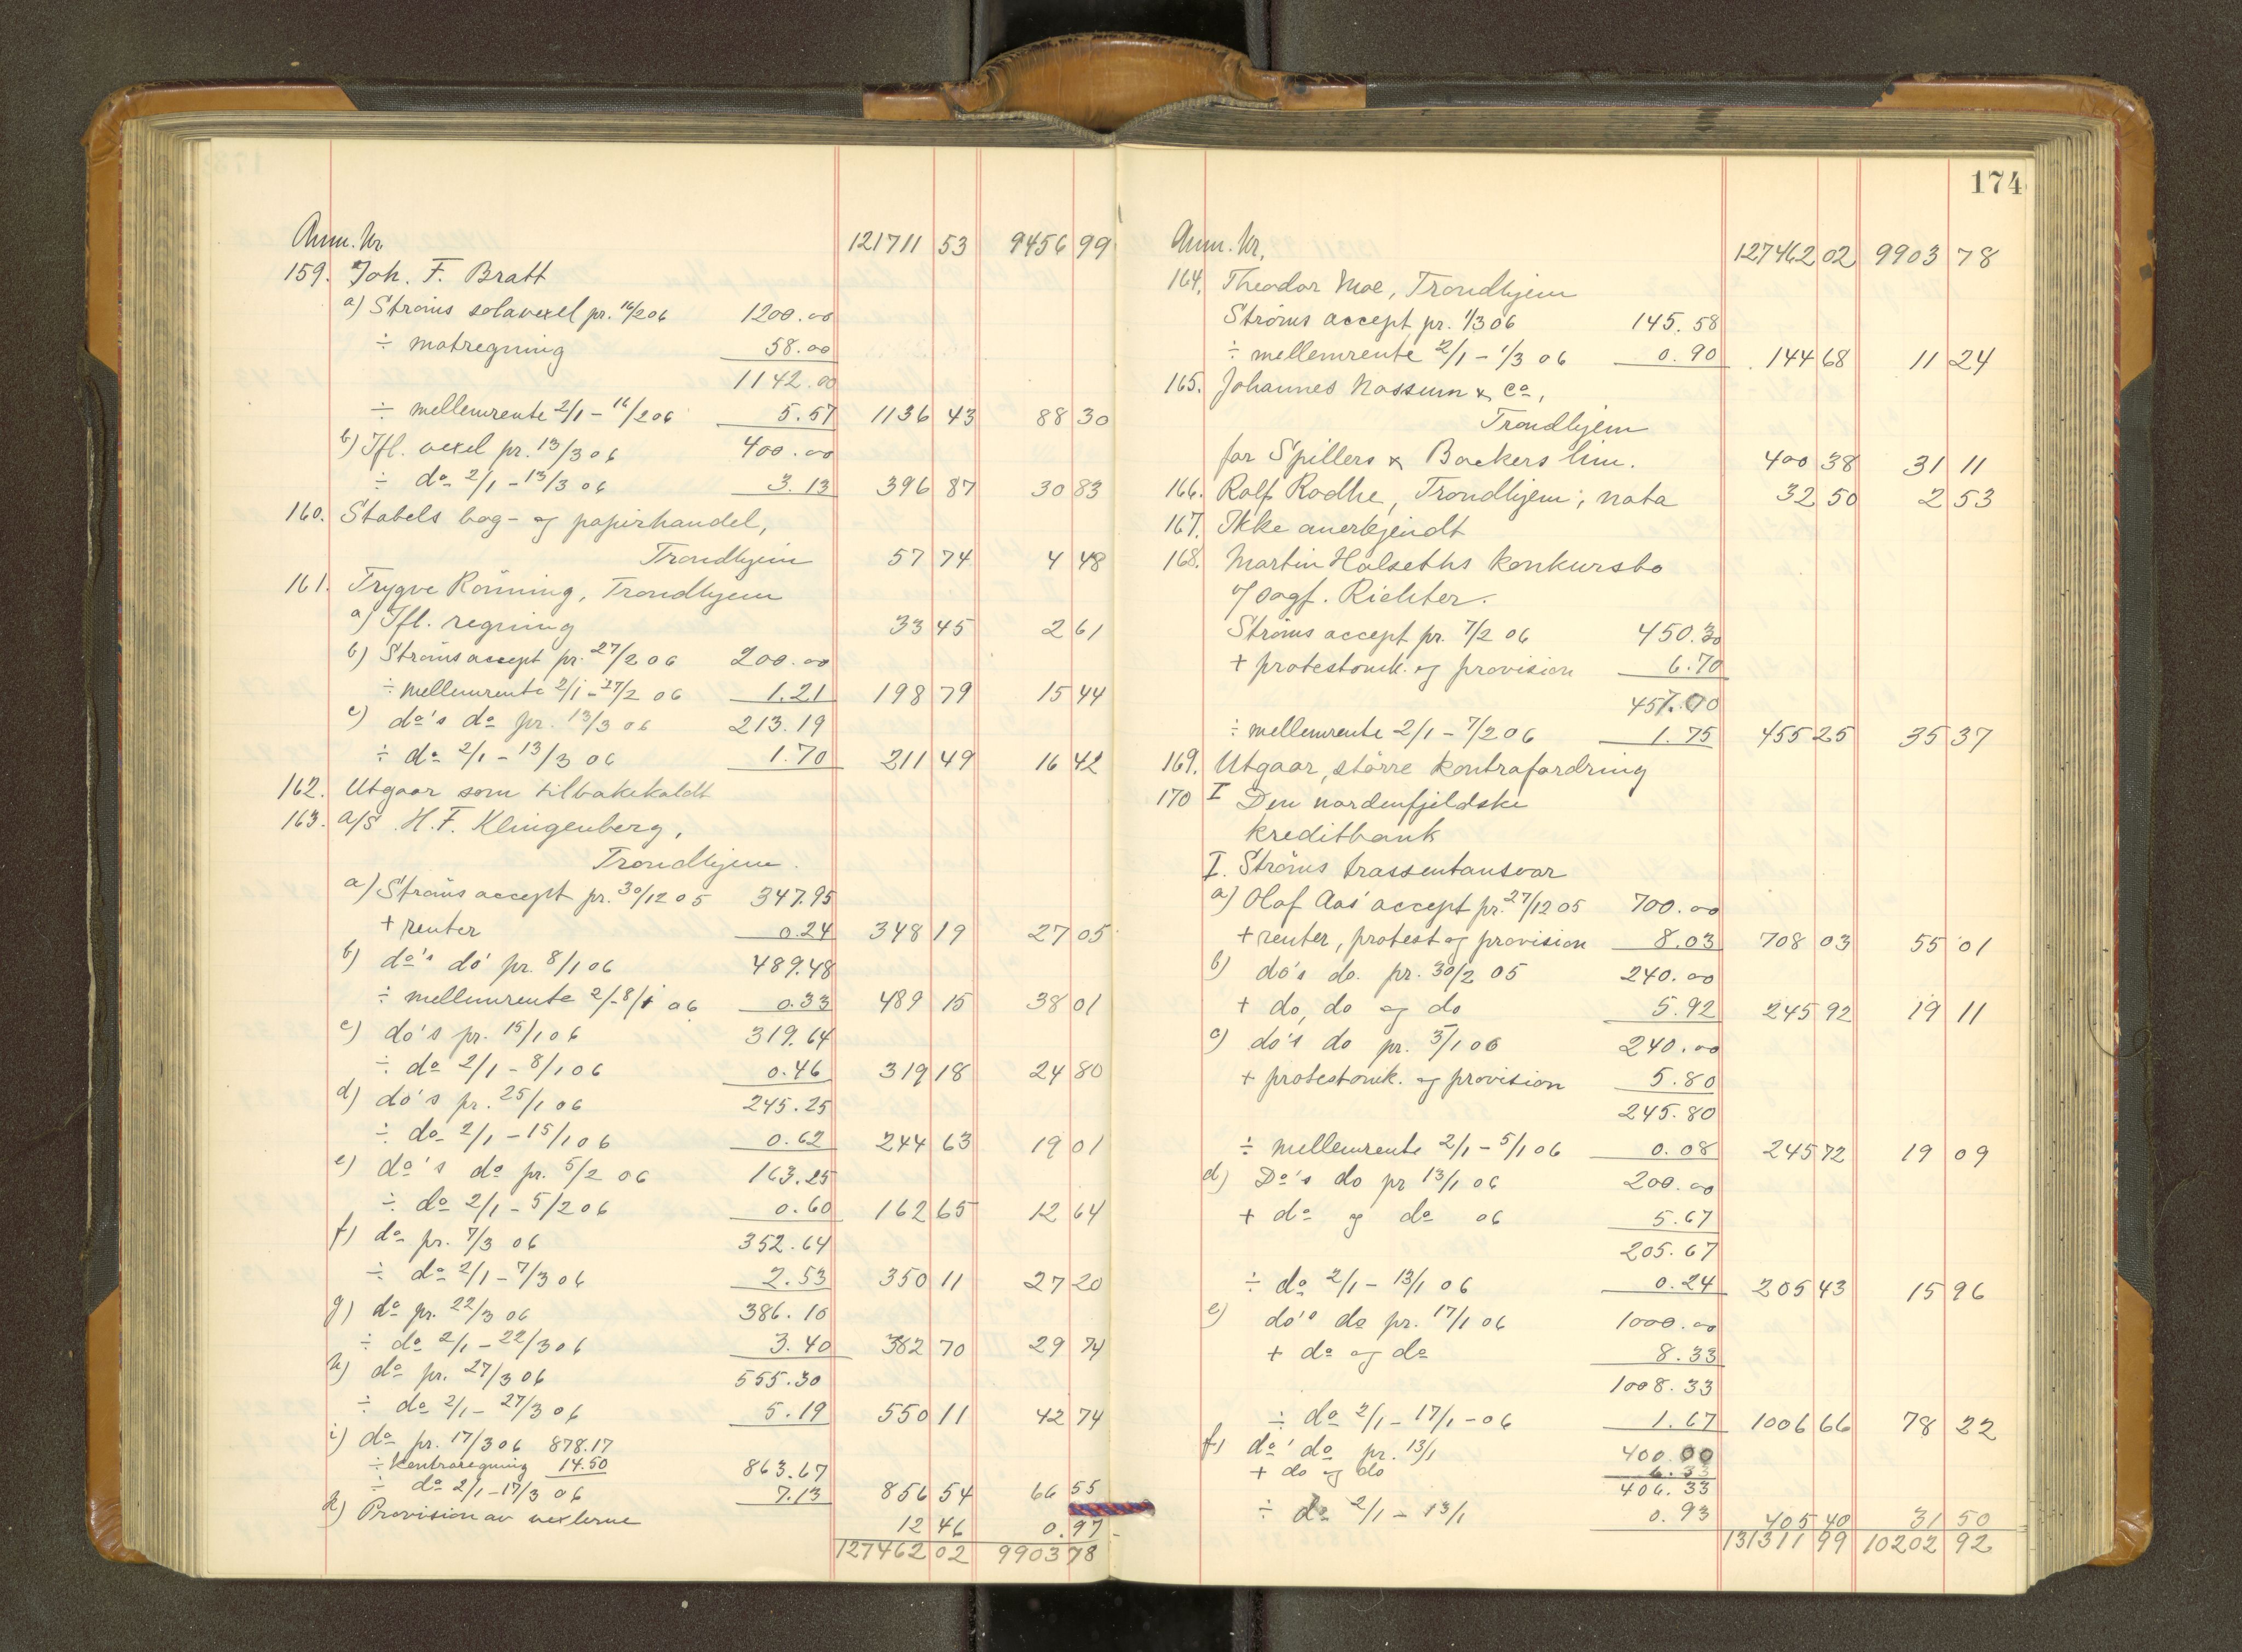 Anm. Nr. 121711 53 9456 99
159. Joh. F. Bratt
a) Ströms solavexel pr. 16/2 06 1200.00
÷ motregning 58.00
1142.00
÷ mellemrente 2/1 - 16/2 06 5.57 1136 43 88 30
b) Ifl. vexel pr. 13/3 06 400.00
÷ do 2/1 - 13/3 06 3.13 396 87 30 83
160. Stabels bog- og papirhandel,
Trondhjem 57 74 4 48
161. Trygve Rönning, Trondhjem
a) Ifl. regning 33 45 2 61
b) Ströms accept pr. 27/2 06 200.00
÷ mellemrente 2/1 - 27/2 06 1.21 198 79 15 44
c) do's do pr. 13/3 06 213.19
÷ do 2/1 - 13/3 06 1.70 211 49 16 42
162. Utgaar som tilbakekaldt
163. a/s H.F. Klingenberg,
Trondhjem.
a) Ströms accept pr. 30/12 05 347.95
+ renter 0.24 348 19 27 05
b) do's do pr. 8/1 06 489.48
÷ mellemrente 2/-8/1 06 0.33 489 15 38 01
c) do's pr. 15/1 06 319.64
÷ do 2/1 - 8/1 06 0.46 319 18 24 80
d) do's pr. 25/1 06 245.25
÷ do 2/1 - 15/1 06 0.62 244 63 19 01
e) do's do pr. 5/2 06 163.25
÷ do 2/1 - 5/2 06 0.60 162 65 12 64
f) do pr. 7/3 06 352.64
÷ do 2/1 - 7/3 06 2.53 350 11 27 20
g) do pr. 22/3 06 386.10
÷ do 2/1 - 22/3 06 3.40 382 70 29 74
h) do pr. 27/3 06 555.30
÷ do 2/1 - 27/3 06 5.19 550 11 42 74
i) do pr. 17/3 06 878.17
÷ Kontraregning 14.50 863.67
÷ do 2/1 - 17/3 06 7.13 856 54 66 55
k) Provision av vexlerne 12 46 0.97
127462 02 9903 78
174
Anm. Nr. 127462 02 9903 78
164. Theodor Moe, Trondhjem
Ströms accept pr. 1/3 06 145.58
÷ mellemrente 2/1 - 1/3 06 0.90 144 68 11 24
165. Johannes Nossum & Co,
Trondhjem
for Spillers & Backers lim. 400 38 31 11
166. Rolf Rodhe, Trondhjem; nota 32 50 2 53
167. Ikke anerkjendt
168. Martin Halseths konkursbo
v/ sagf. Richter.
Ströms accept pr. 7/2 06 450.30
+ protestomk. og provision 6.70
457.00
÷ mellemrente 2/1 - 7/2 06 1.75 455 25 35 37
169. Utgaar, större kontrafordring
170 I Den nordenfjeldske
kreditbank
I. Ströms trassentansvar
a) Olaf Aas' accept pr. 27/12 05 700.00
+ renter, protest og provision 8.03 708 03 55 01
b) do's do. pr. 30/2 05 240.00
+ do, do og do 5.92 245 92 19 11
c) do's do pr. 5/1 06 240.00
+ protestomk. og provision 5.80
245.80
÷ mellemrente 2/1 - 5/1 06 0.08 245 72 19 09
d) Do's do pr 13/1 06 200.00
+ do og do 06 5.67
205.67
÷ do 2/1 - 13/1 06 0.24 205 43 15 96
e) do's do pr. 17/1 06 1000.00
+ do og do 8.33
1008.33
÷ do 2/1 - 17/1 - 06 1.67 1006 66 78 22
f) do' do pr. 13/1 400.00
+ do og do 6.33
406.33
÷ do 2/1 - 13/1 0.93 405 40 31 50
131311 99 10202 92